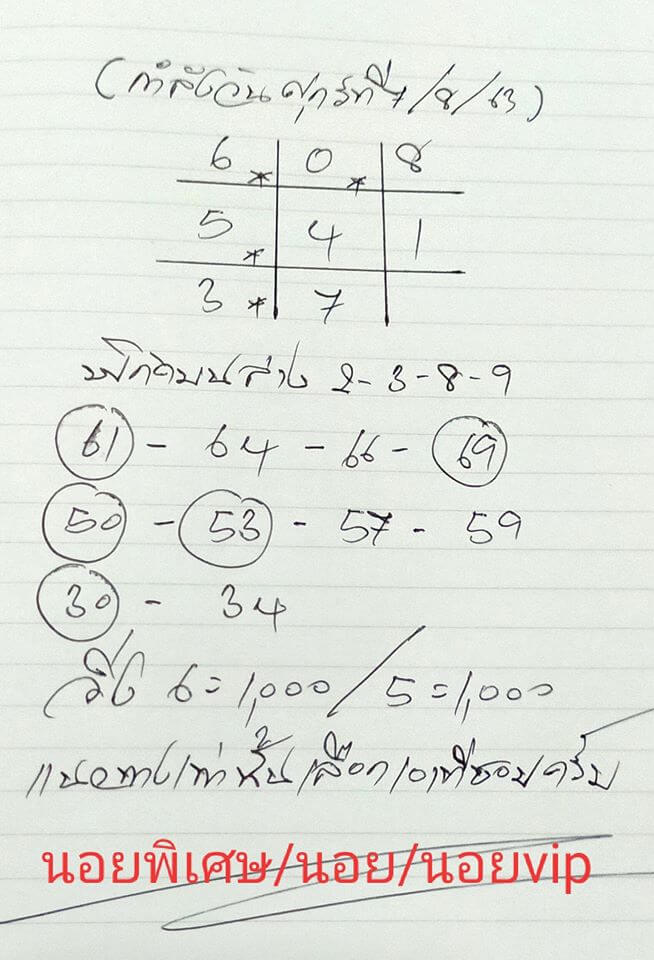 (กำลังวันศุกร์ที่ 7/8/63)
6 * 0 * 8
5 * 4 1
3 * 7
2-3-8-9
61 - 64 - 66 - 69
50 - 53 - 57 - 59
30 - 34
วิ่ง 6=1,000/5=1,000
แนวทางเท่านั้นเลือกเอาที่ชอบครับ
นอยพิเศษ/นอย/นอยvip